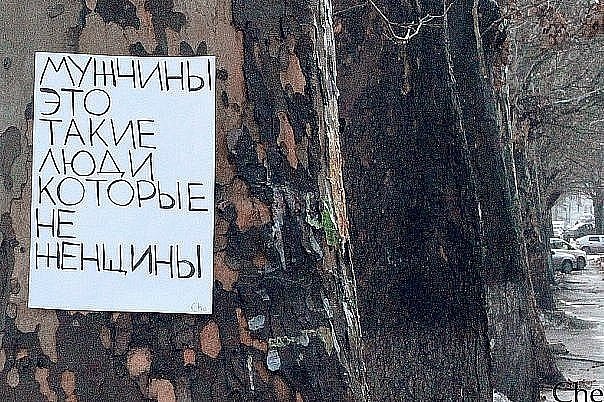 МУЖЧИНЫ
ЭТО
ТАКИЕ
ЛЮДИ
КОТОРЫЕ
НЕ
ЖЕНЩИНЫ
Che
Che